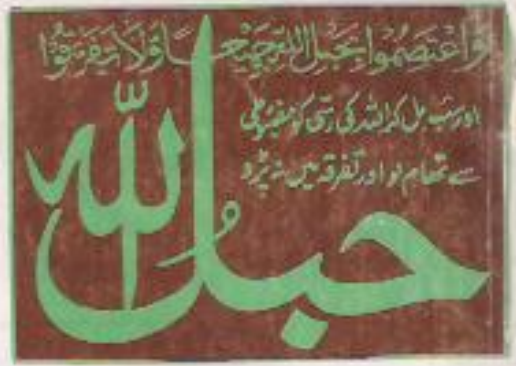 وَاعْتَصِمُوا بِحَبْلِ اللَّهِ جَمِيعًا وَّلَا تَفَرَّقُوا
اور سب مل کر اللہ کی رسی کو مضبوطی
سے تھام لو اور تفرقہ میں نہ پڑو
حبل الله